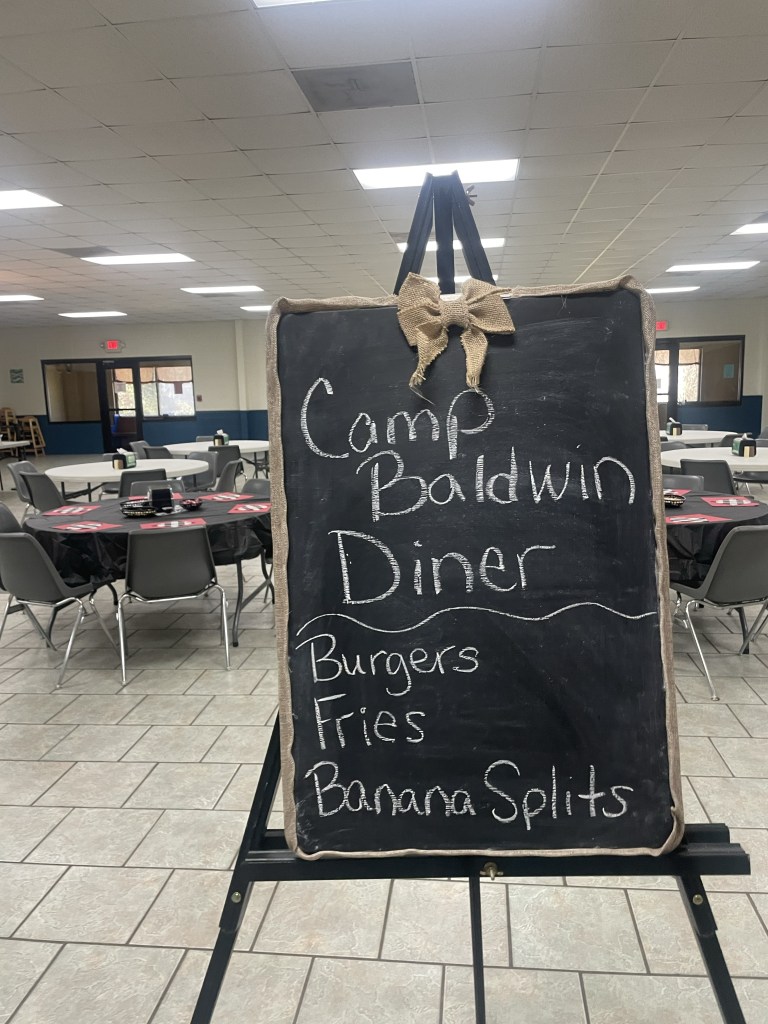 Camp
Baldwin
Diner
Burgers
Fries
Banana Splits